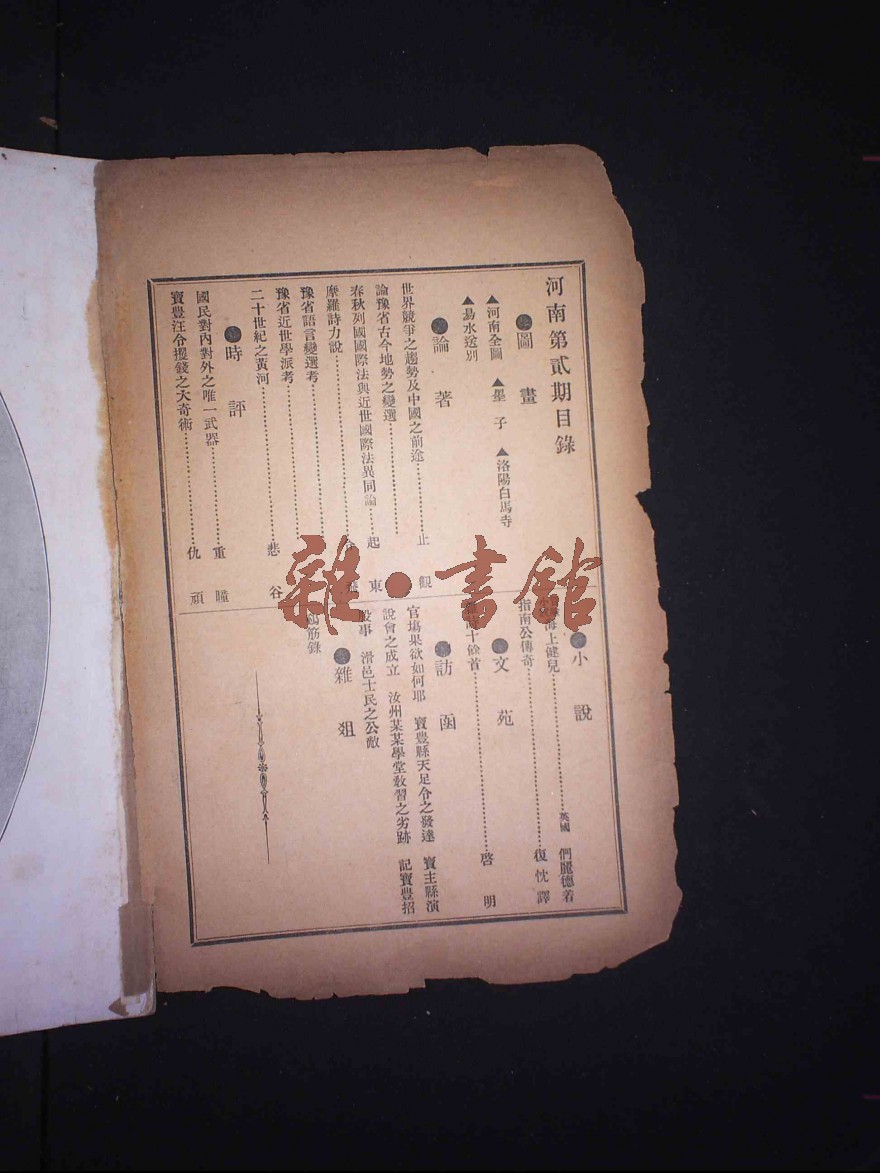 河南第貳期目錄
圖畫
▲河南全圖　▲墨子　▲洛陽白馬寺
▲易水送別
論著
世界競爭之趨勢及中國之前途 止觀
論豫省古今地勢之變遷
春秋列國國際法與近世國際法異同論 起東
摩羅詩力說
豫省語言變遷考
豫省近世學派考
二十世紀之黃河 悲谷
時評
國民對內對外之唯一武器 重瞳
寶豐汪令攫錢之大奇術 仇頑
小說
海上健兒 英國 們麗德着
復忱譯
指南公傳奇
文苑
十餘首 啓明
訪函
官場果欲如何耶　寶豐縣天足令之發達　寶主縣演
說會之成立　汝州某某學堂教習之劣跡　記寶豐招
股事　滑邑士民之公敵
雜俎
筋錄
雜·書館